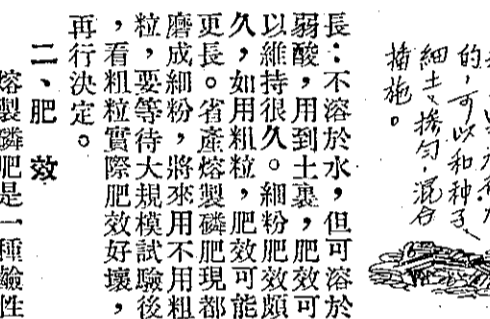 的,可以和种子、
細土、搀匀,混合
播施。
長:不溶於水,但可溶於
弱酸,用到土裏,肥效可
以維持很久。細粉肥效頗
久,如用粗粒,肥效可能
更長。省產熔製磷肥現都
磨成細粉,將來用不用粗
粒,要等待大規模試驗後
,看粗粒實際肥效好壞,
再行決定。
二、肥 效
熔製磷肥是一種鹼性